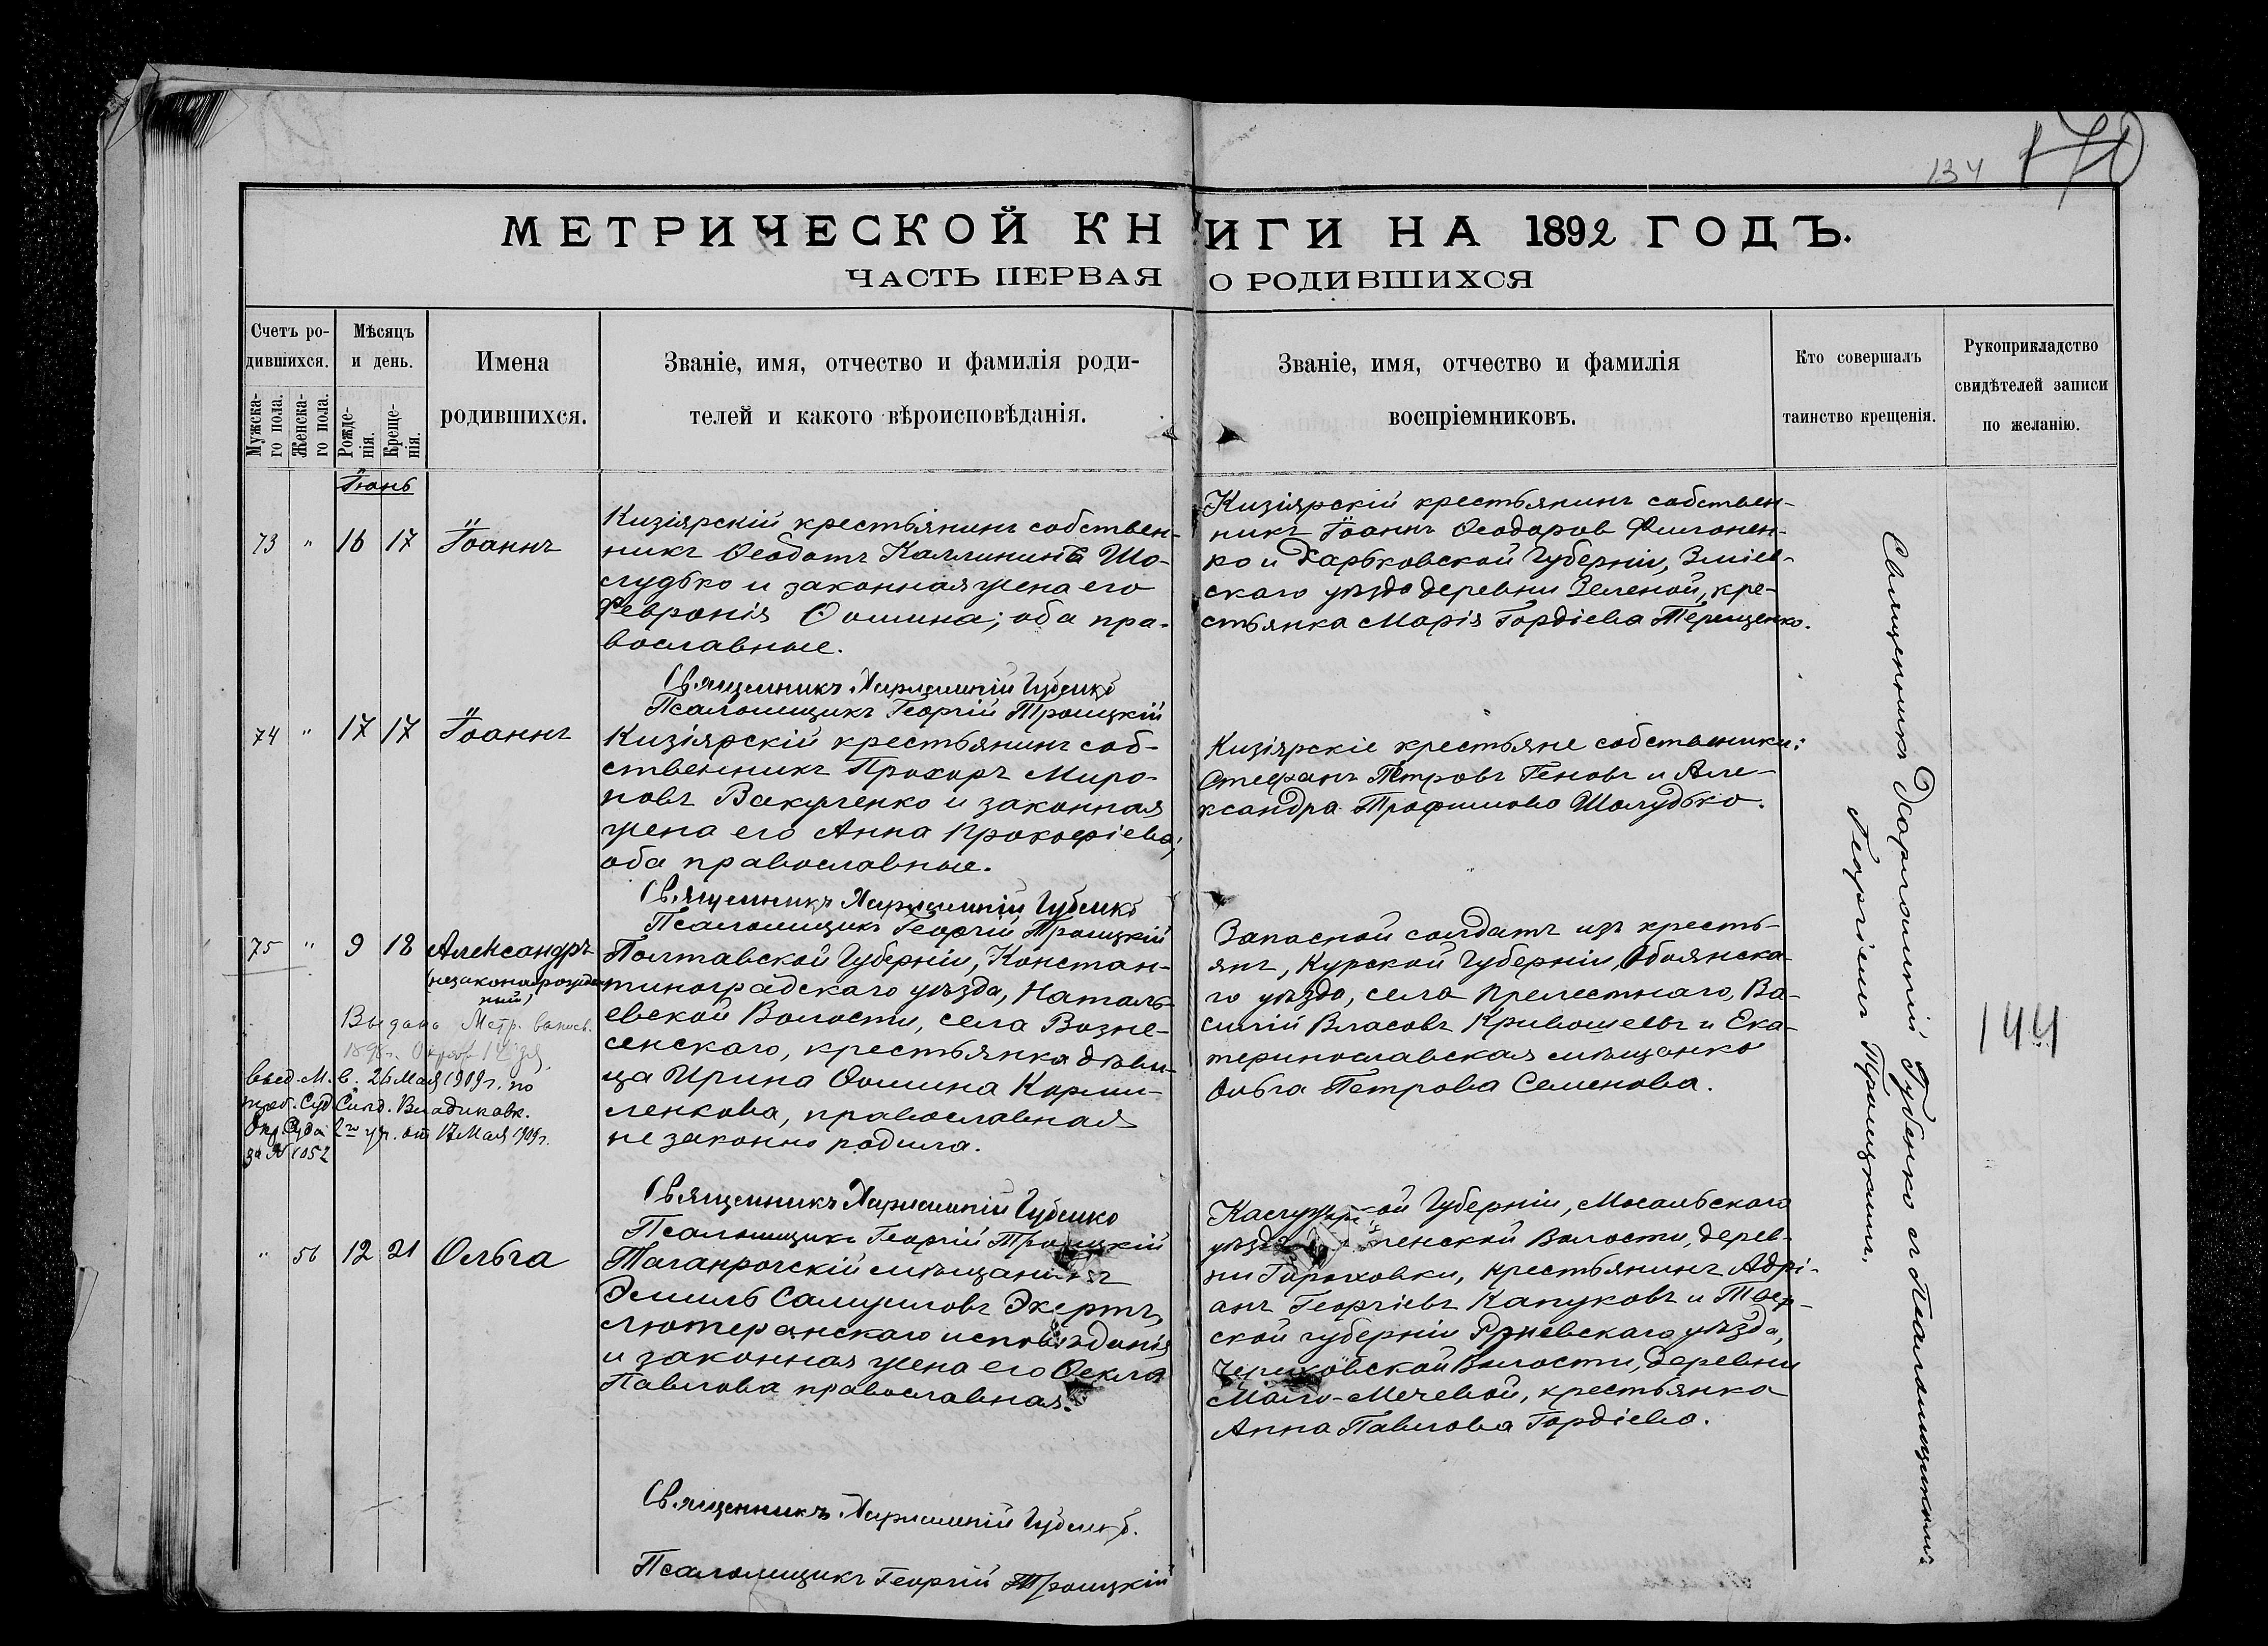 134
МЕТРИЧЕСКОЙ КНИГИ НА 1892 ГОДЪ.
ЧАСТЬ ПЕРВАЯ О РОДИВШИХСЯ
Счетъ ро-
дившихся.
Мужска-
го пола.
Женска-
го пола.
Мѣсяцъ
и день.
Рожде-
нія.
Креще-
нія.
Имена
родившихся.
Званіе, имя, отчество и фамилія роди-
телей и какого вѣроисповѣданія.
Званіе, имя, отчество и фамилія
воспріемниковъ.
Кто совершалъ
таинство крещенія.
Рукоприкладство
свидѣтелей записи
по желанію.
Іюнь
73 " 16 17 Іоаннъ
Кизіярскій крестьянинъ собствен-
никъ Ѳеодотъ Каллининъ Шо-
лудько и законная жена его
Февронія Ѳомина; оба пра-
вославные.
Священникъ Харлампій Губенко
Псаломщикъ Георгій Троицкій
Кизіярскій крестьянинъ собствен-
никъ Іоаннъ Ѳеодоров Филонен-
ко и Харьковской Губерніи, Зміев-
скаго уѣзда деревни Зеленой, кре-
стьянка Марія Гордіева Терещенко.
74 " 17 17 Іоаннъ
Кизіярскій крестьянинъ соб-
ственникъ Прохоръ Миро-
новъ Вакуленко и законная
жена его Анна Прокофіева;
оба православные.
Священникъ Харлампій Губенко
Псаломщикъ Георгій Троицкій
Кизіярскіе крестьяне собственники:
Стефанъ Петровъ Геновъ и Але-
ксандра Трофимова Шолудько.
75 " 9 18 Александръ
(незаконнорожден-
ный)
Выдана Метр. выпись
1898 г.
выд. М. в. 26 Мая 1909 г. по
треб. Суд. Слѣд. Владикавк.
Окр. Суда 2го уч. от 17 Мая 1909 г.
за № 1052
Полтавской Губерніи, Констан-
тиноградскаго уѣзда, Наталь-
евской Волости, села Возне-
сенскаго, крестьянка дѣви-
ца Ирина Ѳомина Корми-
ленкова, православная
незаконно родила.
Священникъ Харлампій Губенко
Псаломщикъ Георгій Троицкій
Запасной солдатъ изъ кресть-
янъ, Курской Губерніи, Обоянска-
го уѣзда, села Прелестнаго, Ва-
силій Власовъ Кривошеевъ и Ека-
теринославская мѣщанка
Ольга Петрова Семенова.
" 56 12 21 Ольга
Таганрогскій мѣщанинъ
Эмиль Самуиловъ Экертъ,
лютеранскаго исповѣданія
и законная жена его Ѳекла
Павлова православная.
Священникъ Харлампій Губенко.
Псаломщикъ Георгій Троицкій
Калужской Губерніи, Мосальскаго
уѣзда Волости, дерев-
ни Гороховки, крестьянинъ Адрі-
анъ Георгіевъ Капуковъ и Твер-
ской губерніи Ржевскаго уѣзда,
Волости, деревни
Мало-Мечевой, крестьянка
Анна Павлова Гордіева.
Священникъ Харлампій Губенко съ Псаломщикомъ
Георгіемъ Троицкимъ.
144